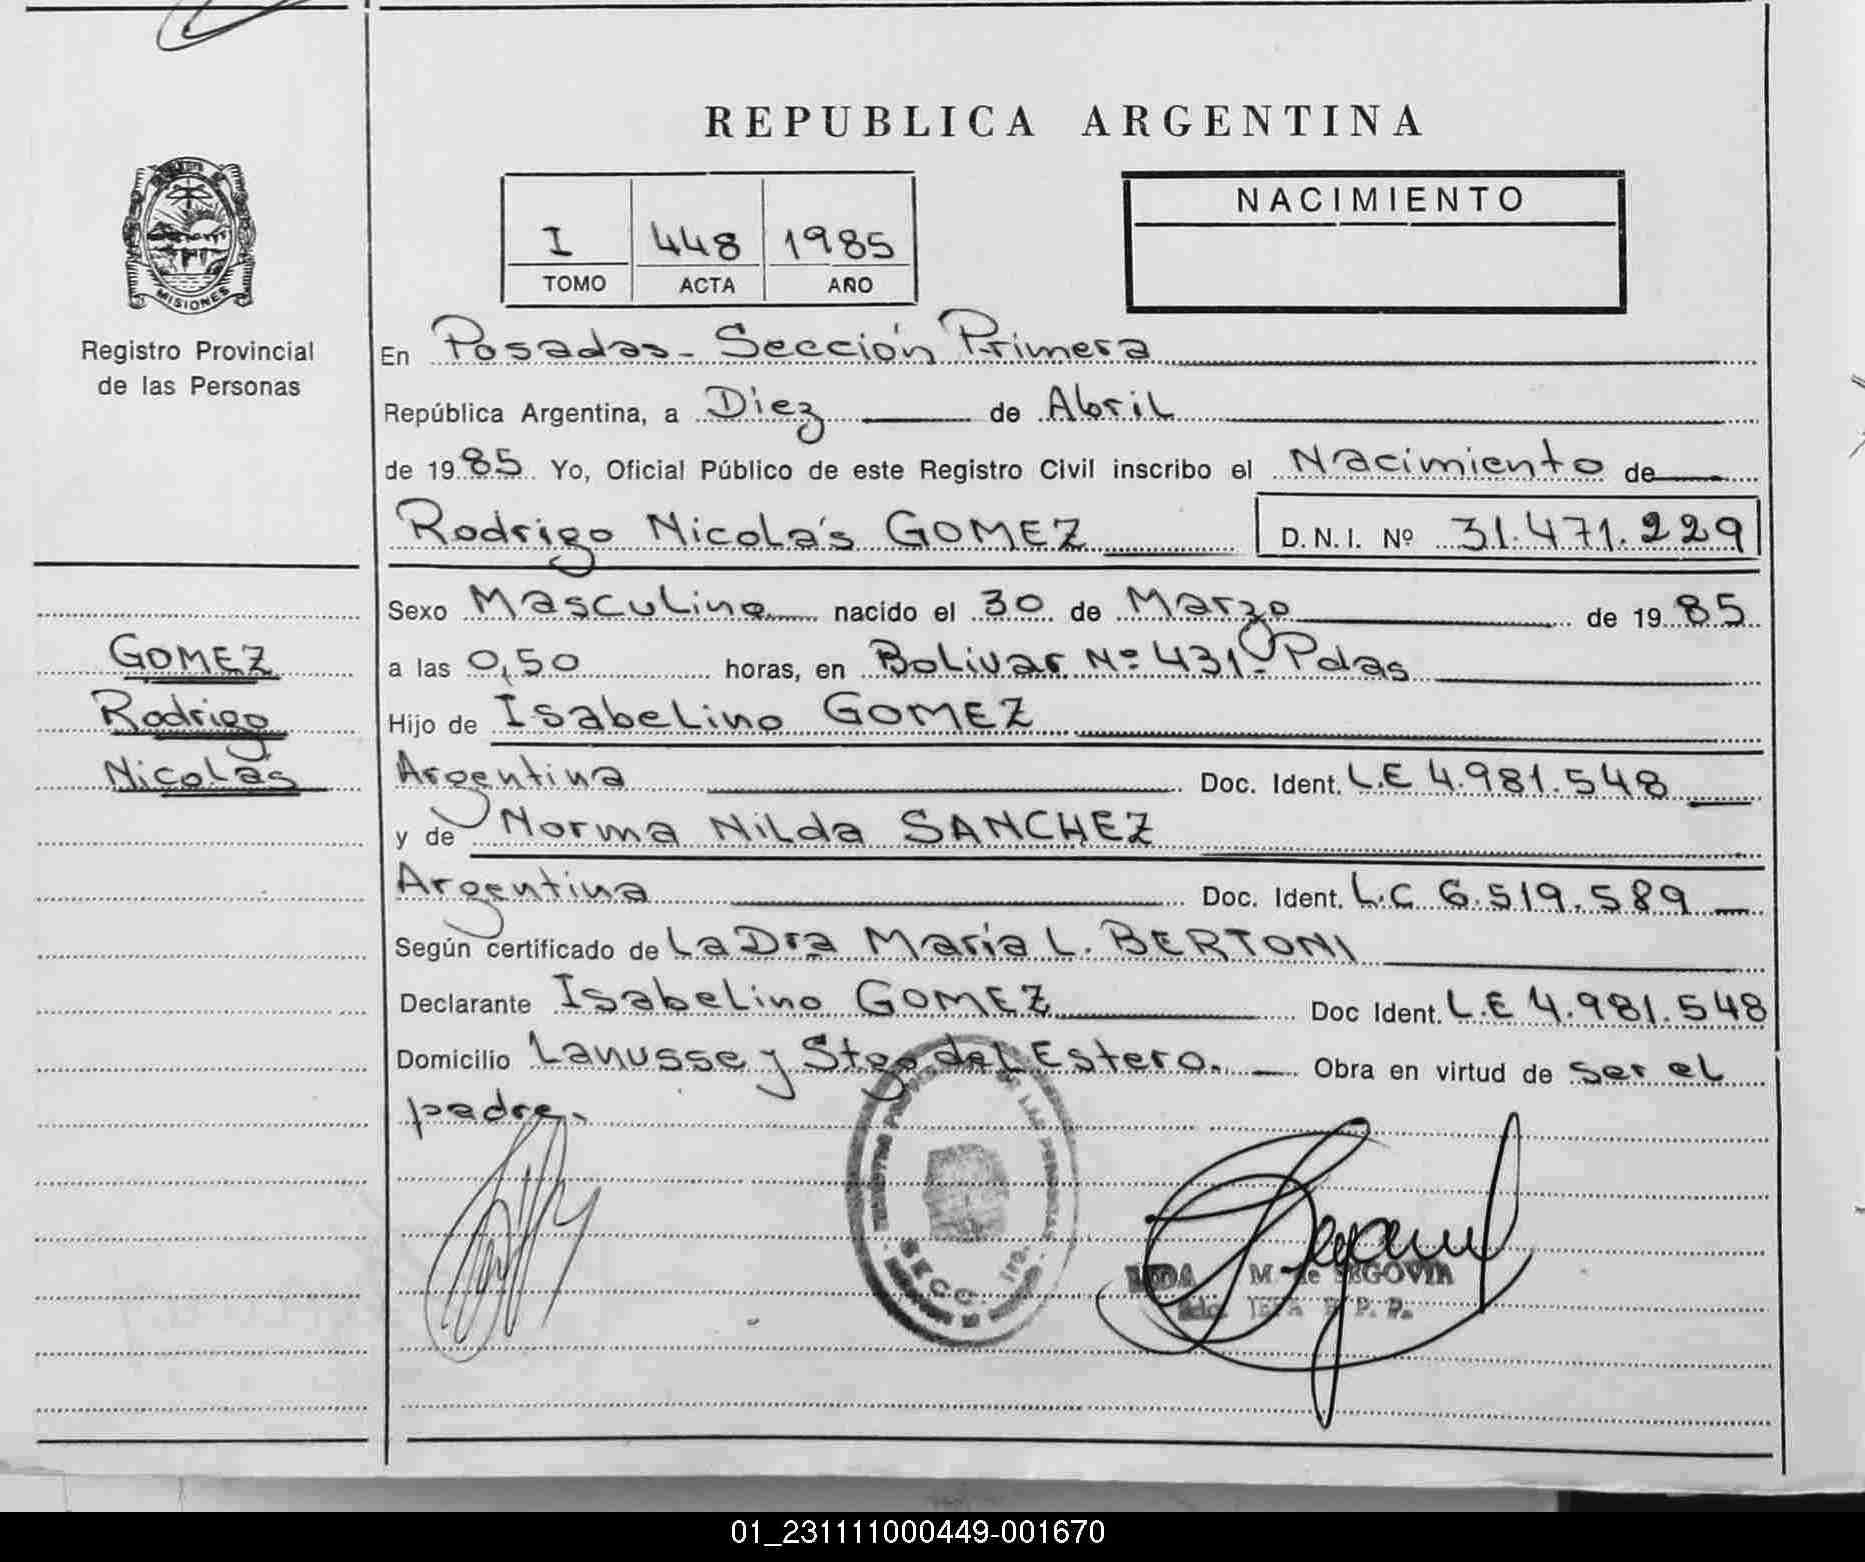 REPUBLICA ARGENTINA
I 448 1985
TOMO ACTA AÑO
NACIMIENTO
MISIONES
Registro Provincial
de las Personas
En Posadas - Sección Primera
República Argentina, a Diez de Abril
de 1985. Yo, Oficial Público de este Registro Civil inscribo el Nacimiento de
Rodrigo Nicolás GOMEZ D.N.I. Nº 31.471.229
Sexo Masculino nacido el 30 de Marzo de 1985
a las 0,50 horas, en Bolivar Nº 431 - Pdas
Hijo de Isabelino GOMEZ
Argentina Doc. Ident. L.E 4.981.548
y de Norma Nilda SANCHEZ
Argentina Doc. Ident. L.C 6.519.589
Según certificado de La Dra María L. BERTONI
Declarante Isabelino GOMEZ Doc Ident. L.E 4.981.548
Domicilio Lanusse y Stgo del Estero. Obra en virtud de ser el
padre.
GOMEZ
Rodrigo
Nicolás
DE LAS PERSONAS
SECC. 1ra.
M. de SEGOVIA
R. P. P.
01_231111000449-001670